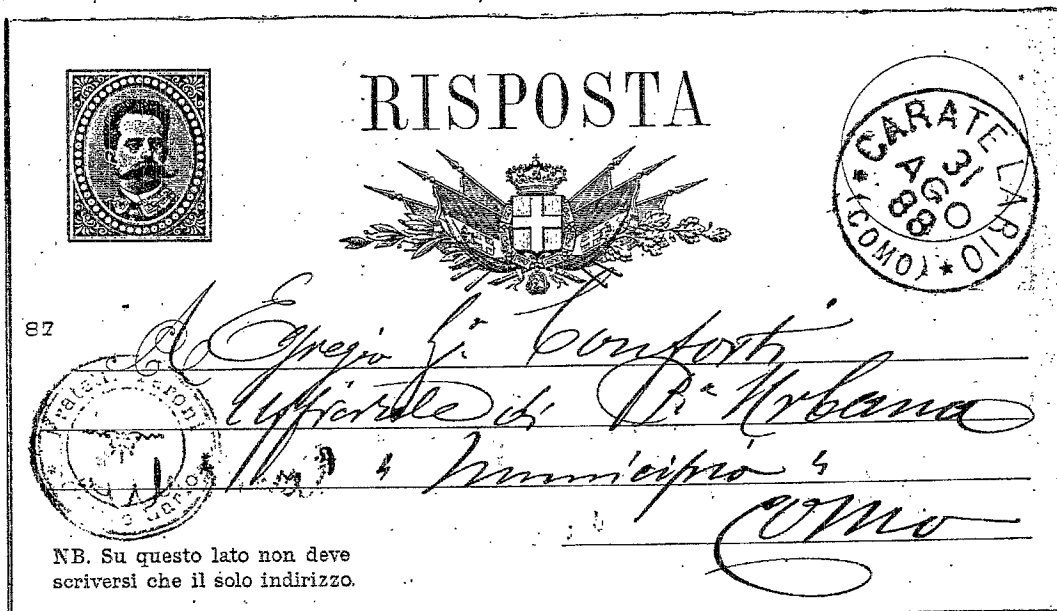 RISPOSTA
CARATE LARIO
31
AGO
88
* (COMO) *
87
Egregio Sr. Conforti
Uffiziale di P.a Urbana
" Municipio "
Como
NB. Su questo lato non deve
scriversi che il solo indirizzo.